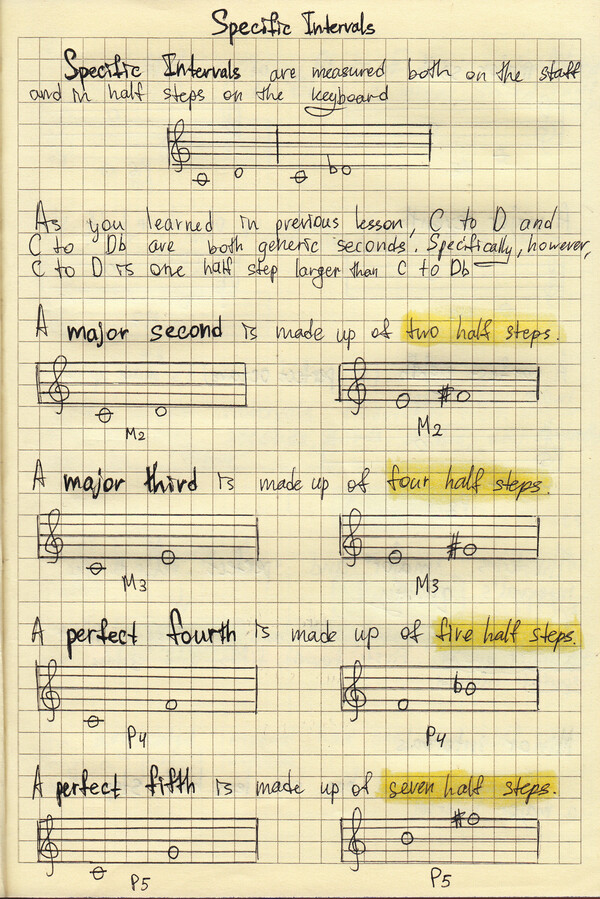 Specific Intervals
Specific Intervals are measured both on the staff
and in half steps on the keyboard
As you learned in previous lesson, C to D and
C to Db are both generic seconds. Specifically, however,
C to D is one half step larger than C to Db
A major second is made up of two half steps.
M2 M2
A major third is made up of four half steps.
M3 M3
A perfect fourth is made up of five half steps.
P4 P4
A perfect fifth is made up of seven half steps.
P5 P5